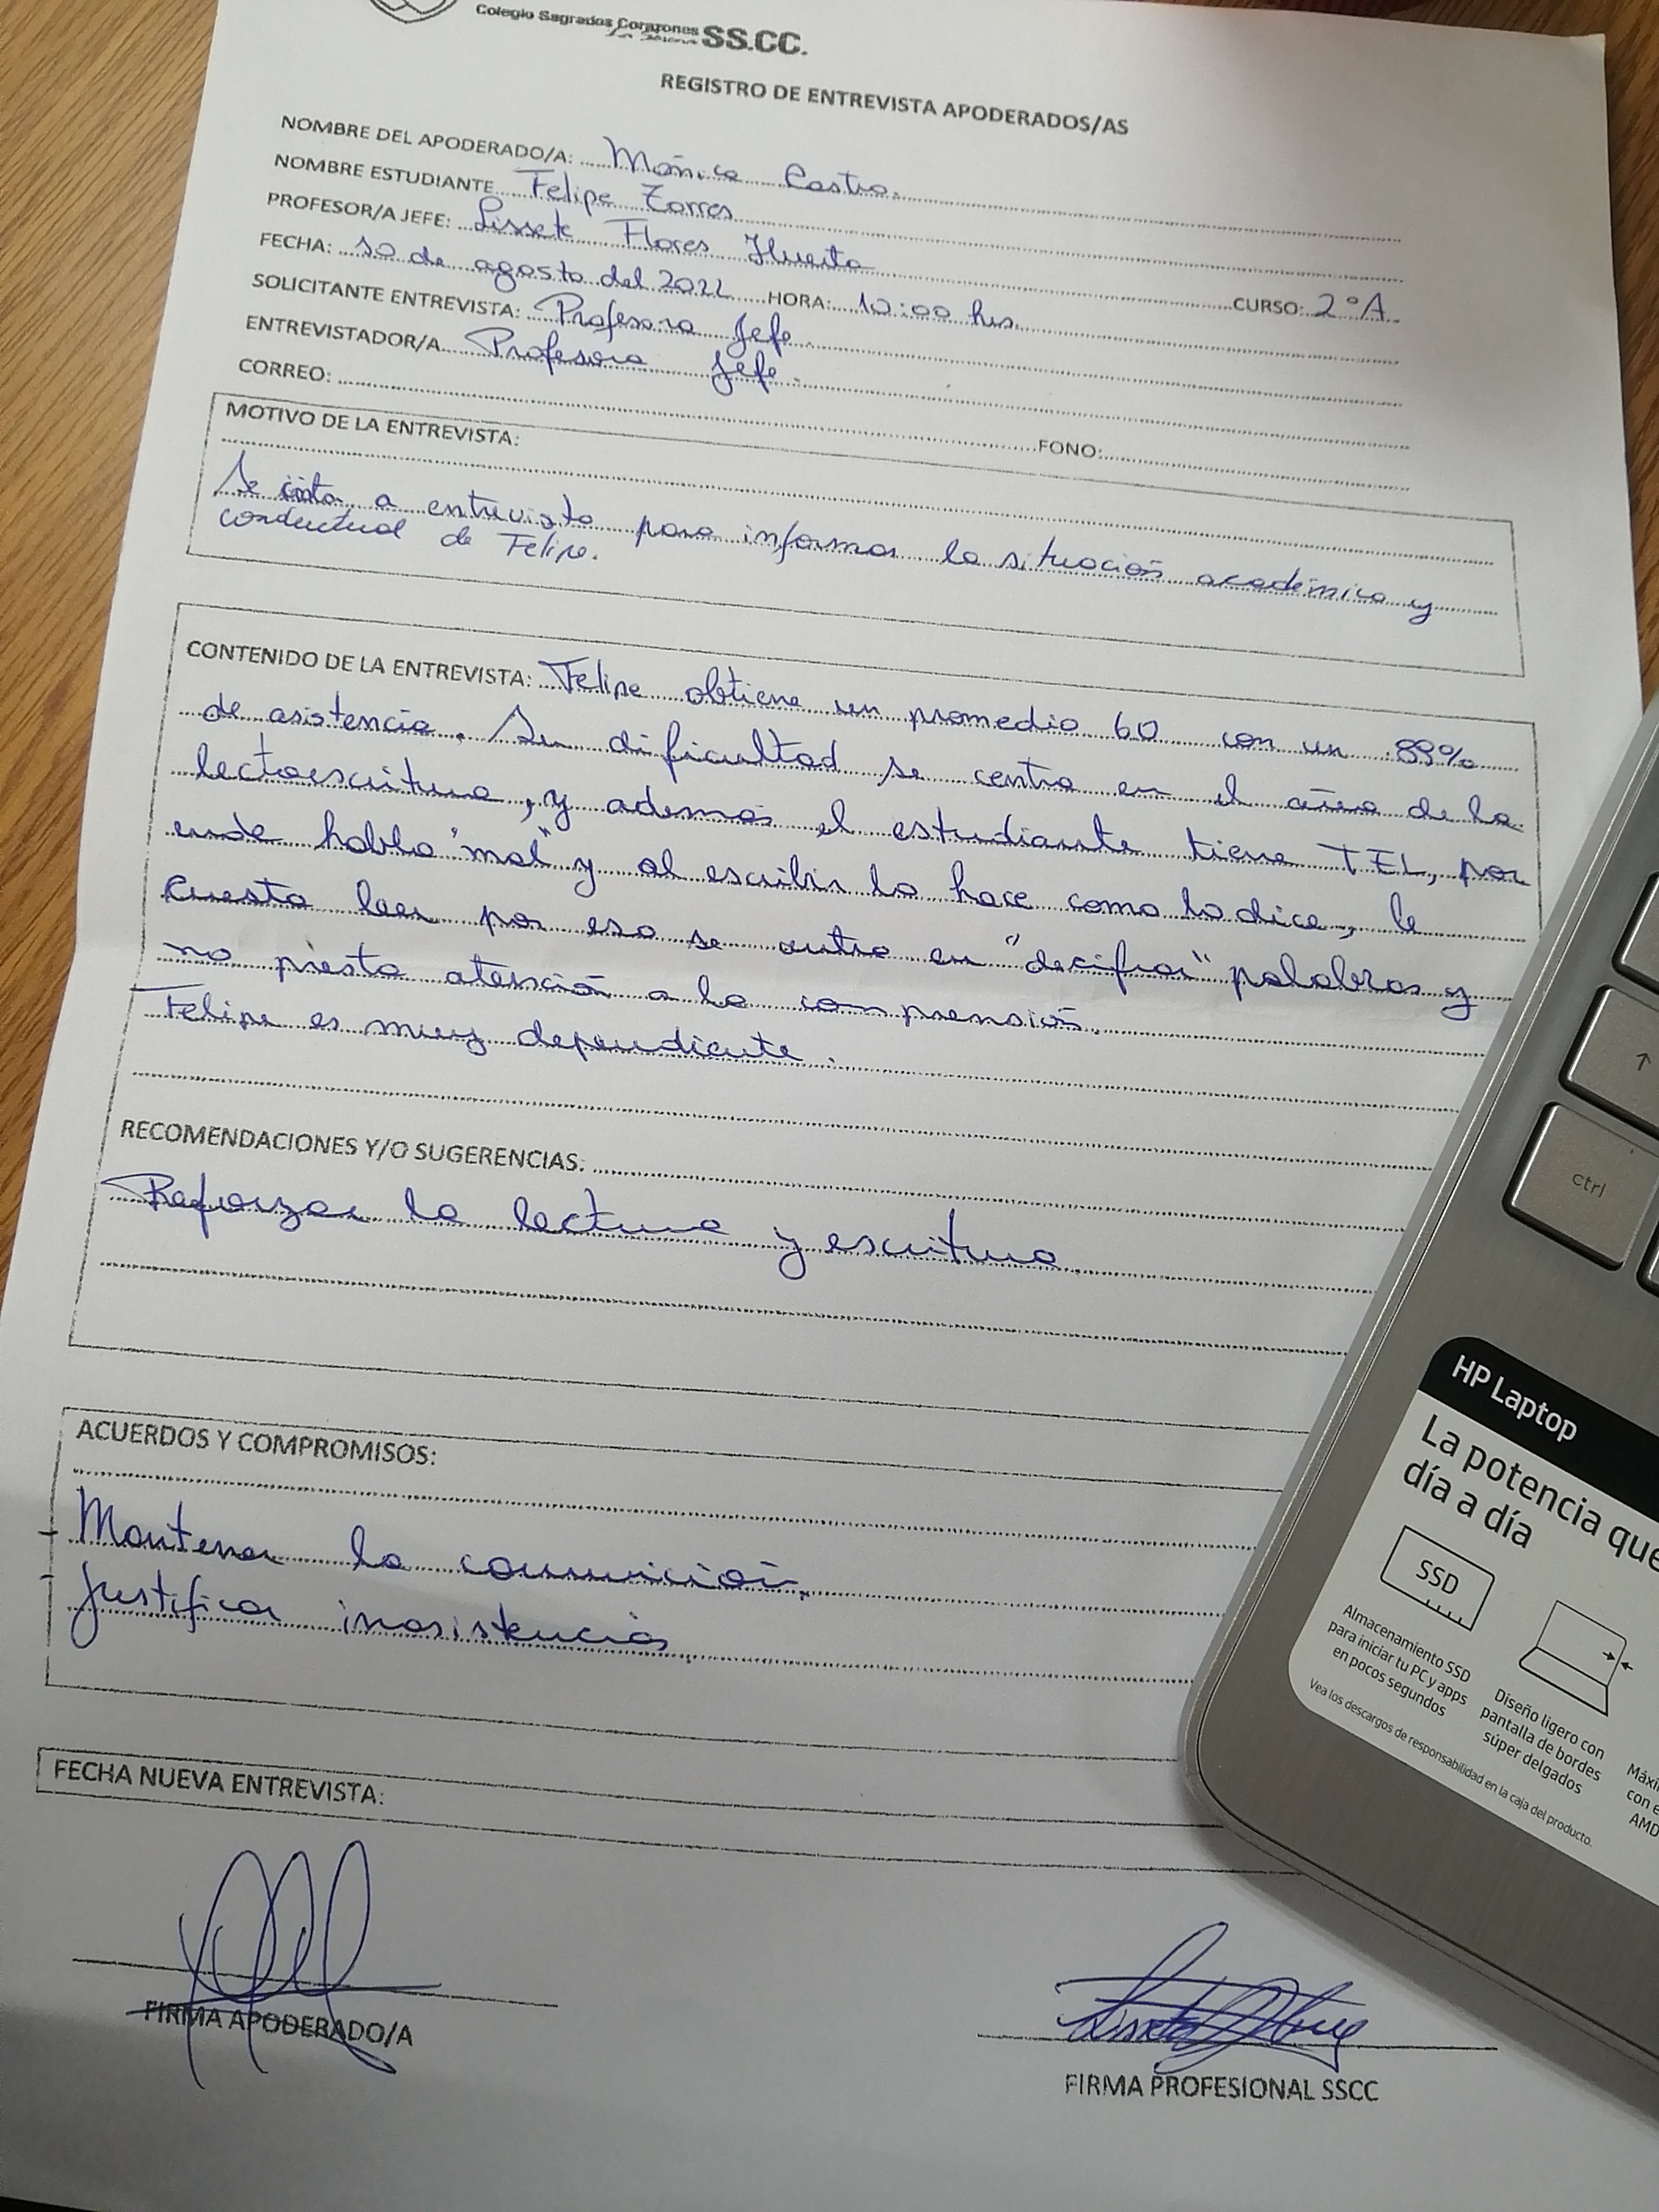 Colegio Sagrados Corazones SS.CC.
La Serena
REGISTRO DE ENTREVISTA APODERADOS/AS
NOMBRE DEL APODERADO/A: Mónica Castro.
NOMBRE ESTUDIANTE Felipe Torres
PROFESOR/A JEFE: Lissete Flores Huerta
FECHA: 10 de agosto del 2022 HORA: 10:00 hrs. CURSO: 2°A.
SOLICITANTE ENTREVISTA: Profesora Jefe.
ENTREVISTADOR/A Profesora Jefe.
CORREO: FONO:
MOTIVO DE LA ENTREVISTA:
Se cita a entrevista para informar la situación académica y
conductual de Felipe.
CONTENIDO DE LA ENTREVISTA: Felipe obtiene un promedio 60 con un 89%
de asistencia. Su dificultad se centra en el área de la
lectoescritura, y además el estudiante tiene TEL, por
ende habla "mal" y al escribir lo hace como lo dice, le
cuesta leer por eso se centra en "decifrar" palabras y
no presta atención a la comprensión.
Felipe es muy dependiente.
RECOMENDACIONES Y/O SUGERENCIAS:
Reforzar la lectura y escritura
ACUERDOS Y COMPROMISOS:
- Mantener la comunición.
- Justificar inasistencias
FECHA NUEVA ENTREVISTA:
FIRMA APODERADO/A
FIRMA PROFESIONAL SSCC
↑
ctrl
HP Laptop
La potencia que
día a día
SSD
Almacenamiento SSD
para iniciar tu PC y apps
en pocos segundos
Diseño ligero con
pantalla de bordes
súper delgados
Máxi
con e
AMD
Vea los descargos de responsabilidad en la caja del producto.